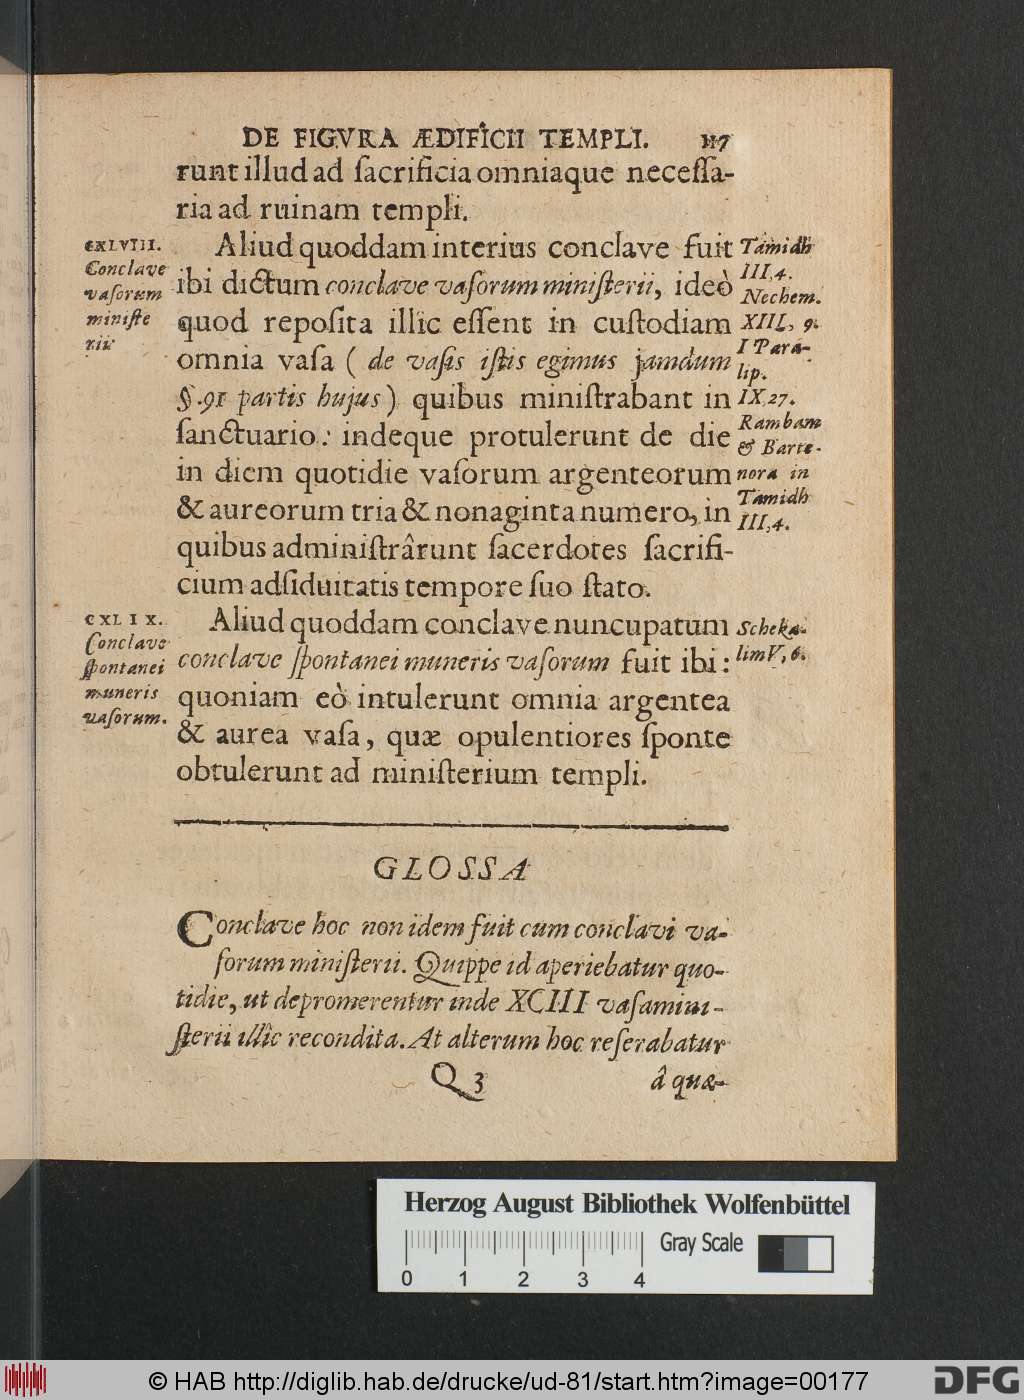 DE FIGVRA ÆDIFICII TEMPLI. 117
runt illud ad ſacrificia omniaque neceſſa-
ria ad ruinam templi.
CXLVIII.
Conclave
vaſorum
miniſte
rii
Aliud quoddam interius conclave fuit
ibi dictum conclave vaſorum miniſterii, ideò
quod repoſita illic eſſent in cuſtodiam
omnia vaſa ( de vaſis iſtis egimus jamdum
§.91 partis hujus) quibus miniſtrabant in
ſanctuario: indeque protulerunt de die
in diem quotidie vaſorum argenteorum
& aureorum tria & nonaginta numero, in
quibus adminiſtrârunt ſacerdotes ſacrifi-
cium adſiduitatis tempore ſuo ſtato.
Tamidh
III,4.
Nechem.
XIII, 9.
I Para-
lip.
IX,27.
Rambam
& Barte-
nora in
Tamidh
III,4.
CXLIX.
Conclave
ſpontanei
muneris
vaſorum.
Aliud quoddam conclave nuncupatum
conclave ſpontanei muneris vaſorum fuit ibi:
quoniam eò intulerunt omnia argentea
& aurea vaſa, quæ opulentiores ſponte
obtulerunt ad miniſterium templi.
Scheka-
lim V, 6.
GLOSSA
Conclave hoc non idem fuit cum conclavi va-
ſorum miniſterii. Quippe id aperiebatur quo-
tidie, ut depromerentur inde XCIII vaſa mini-
ſterii illîc recondita. At alterum hoc reſerabatur
Q 3 â quæ-
Herzog August Bibliothek Wolfenbüttel
Gray Scale
0 1 2 3 4
© HAB http://diglib.hab.de/drucke/ud-81/start.htm?image=00177
DFG